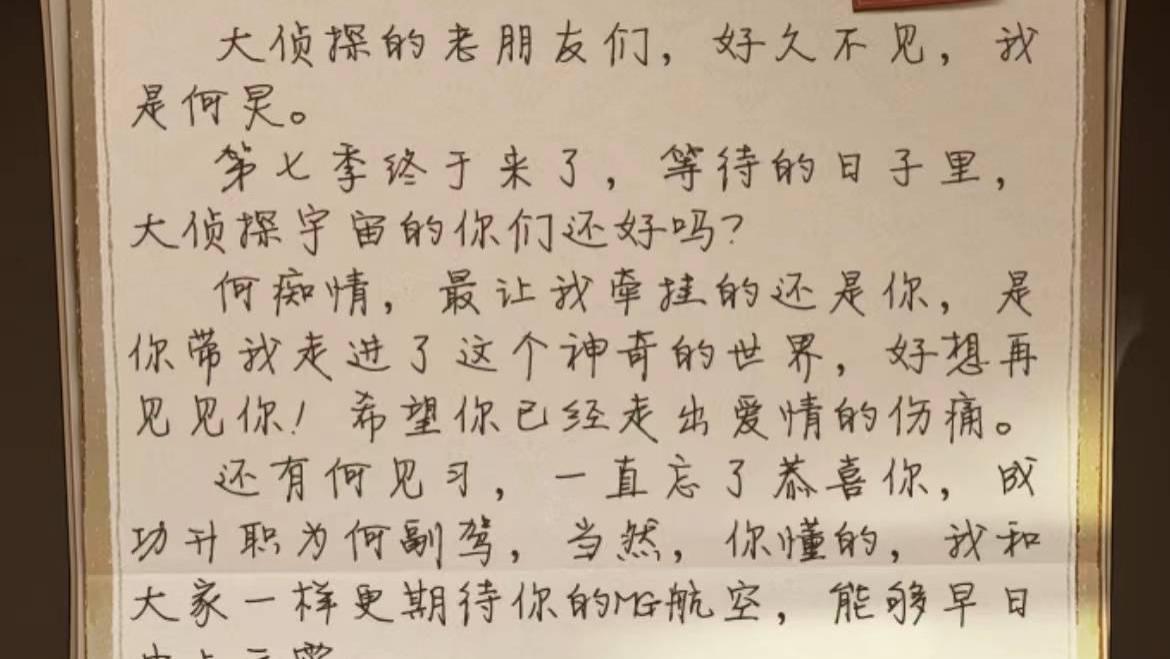 大侦探的老朋友们，好久不见，我
是何炅。
第七季终于来了，等待的日子里，
大侦探宇宙的你们还好吗？
何痴情，最让我牵挂的还是你，是
你带我走进了这个神奇的世界，好想再
见见你！希望你已经走出爱情的伤痛。
还有何见习，一直忘了恭喜你，成
功升职为何副驾，当然，你懂的，我和
大家一样更期待你的MG航空，能够早日